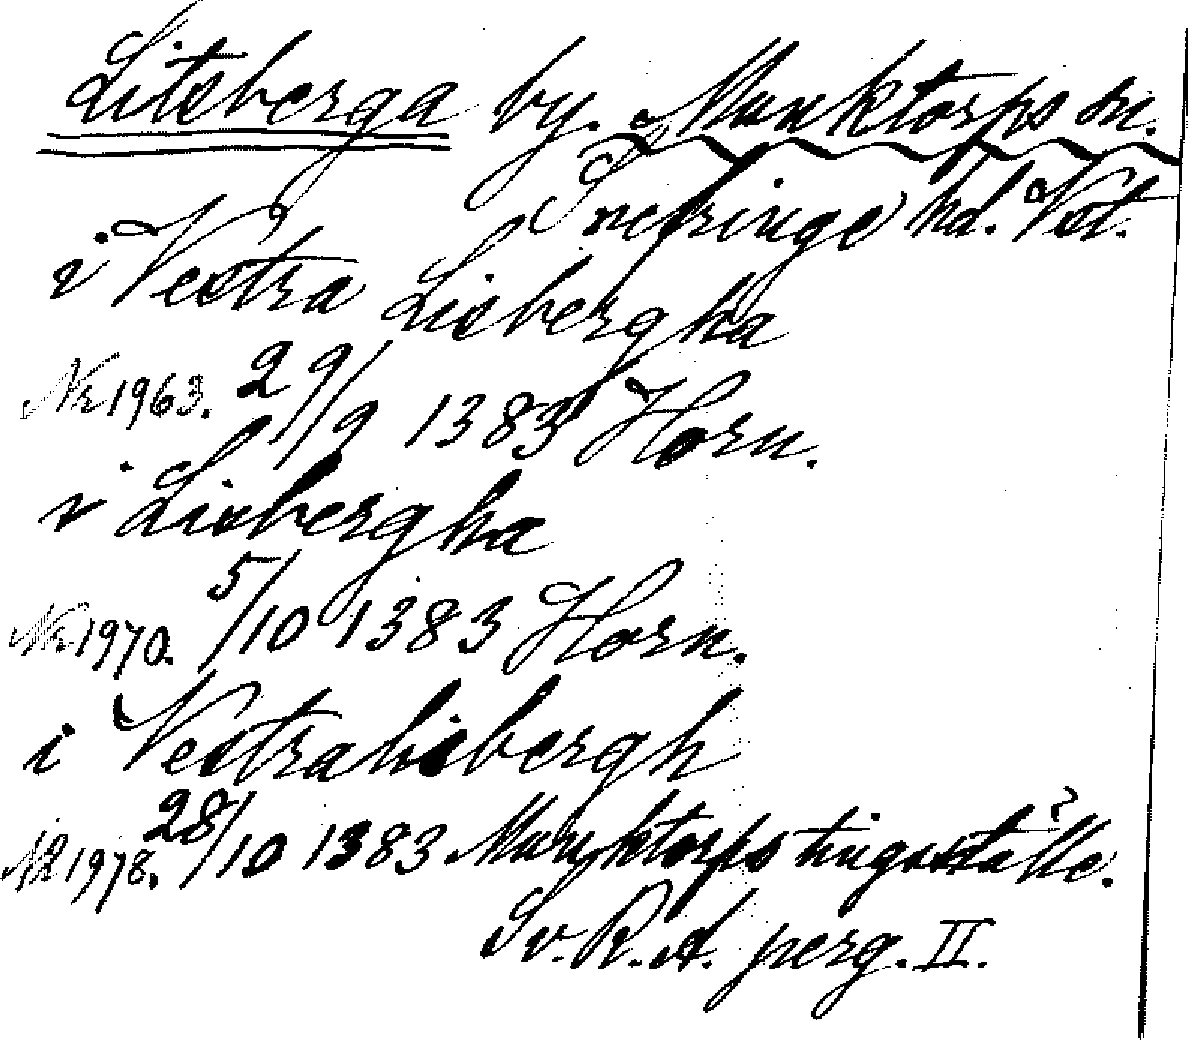 Litsberga by. Munktorps sn.
Snefringe hd. Vst.
i Vestra Lisbergha
Nr 1963. 29/9 1383 Horn.
i Lisbergha
Nr 1970. 5/10 1383 Horn.
i Vestralisbergh
Nr 1978. 28/10 1383 Munktorps tingställe.
Sv. R. A. perg. II.